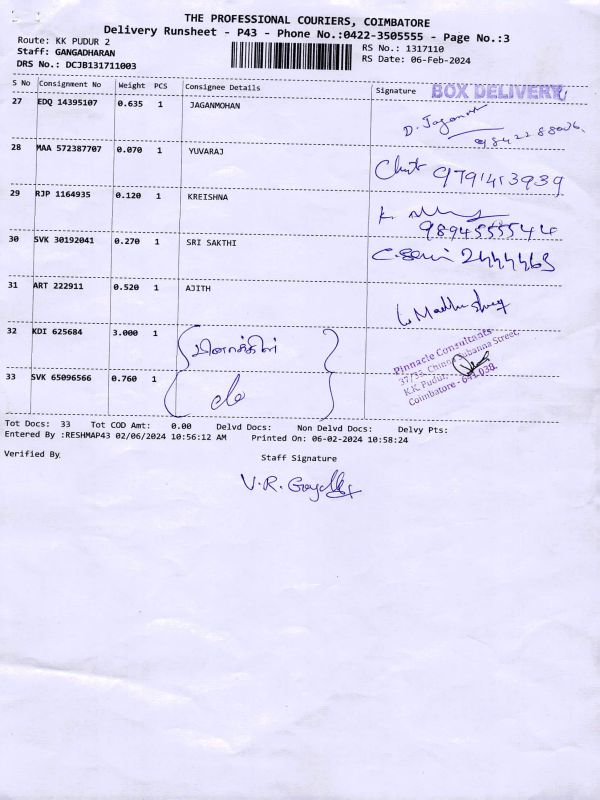 THE PROFESSIONAL COURIERS, COIMBATORE
Delivery Runsheet - P43 - Phone No.:0422-3505555 - Page No.:3
Route: KK PUDUR 2
RS No.: 1317110
Staff: GANGADHARAN
RS Date: 06-Feb-2024
DRS No.: DCJB131711003
S No Consignment No Weight PCS Consignee Details Signature BOX DELIVERY
27 EDQ 14395107 0.635 1 JAGANMOHAN
D. Jagan
28 MAA 572387707 0.070 1 YUVARAJ
9791413939
29 RJP 1164935 0.120 1 KREISHNA
K.
9894555544
30 SVK 30192041 0.270 1 SRI SAKTHI
2444463
31 ART 222911 0.520 1 AJITH
32 KDI 625684 3.000 1
Pinnacle Consultants
37/33, Chinna Subanna Street,
K.K. Pudur,
Coimbatore - 641 038.
33 SVK 65096566 0.760 1
Tot Docs: 33 Tot COD Amt: 0.00 Delvd Docs: Non Delvd Docs: Delvy Pts:
Entered By :RESHMAP43 02/06/2024 10:56:12 AM Printed On: 06-02-2024 10:58:24
Verified By
Staff Signature
V.R.